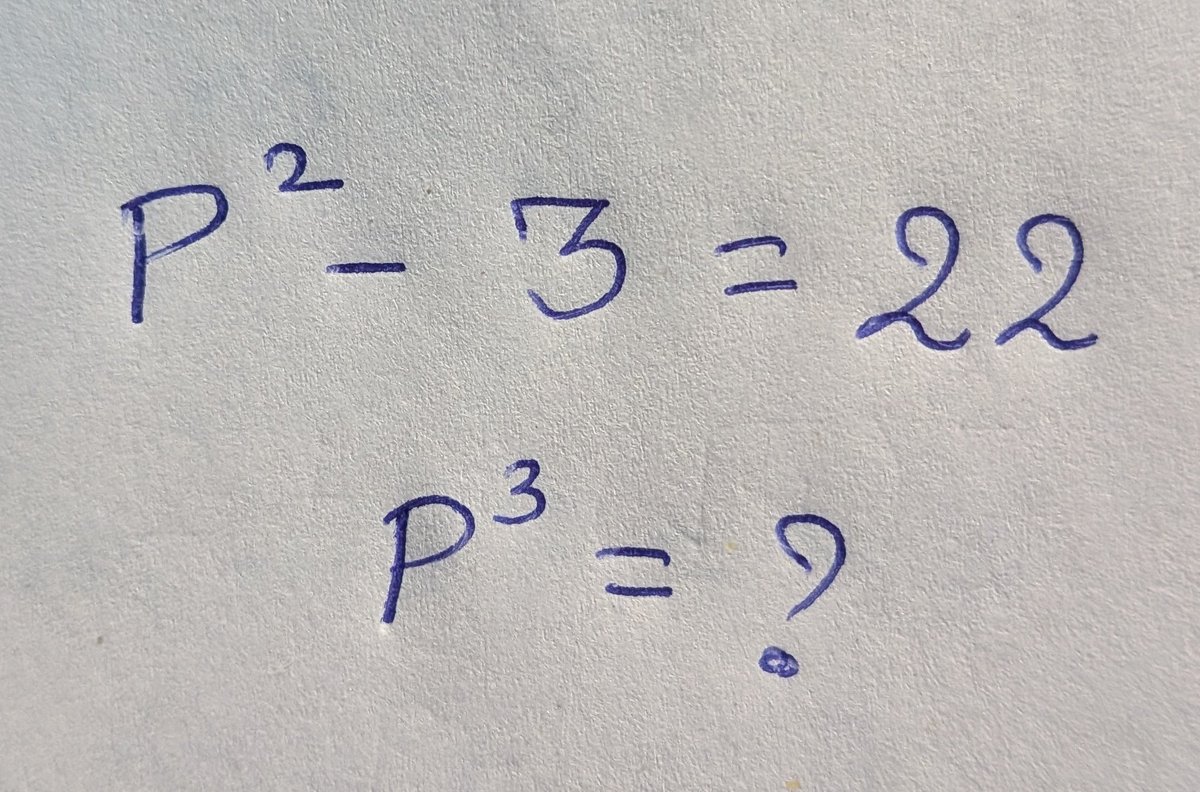 P² - 3 = 22
P³ = ?